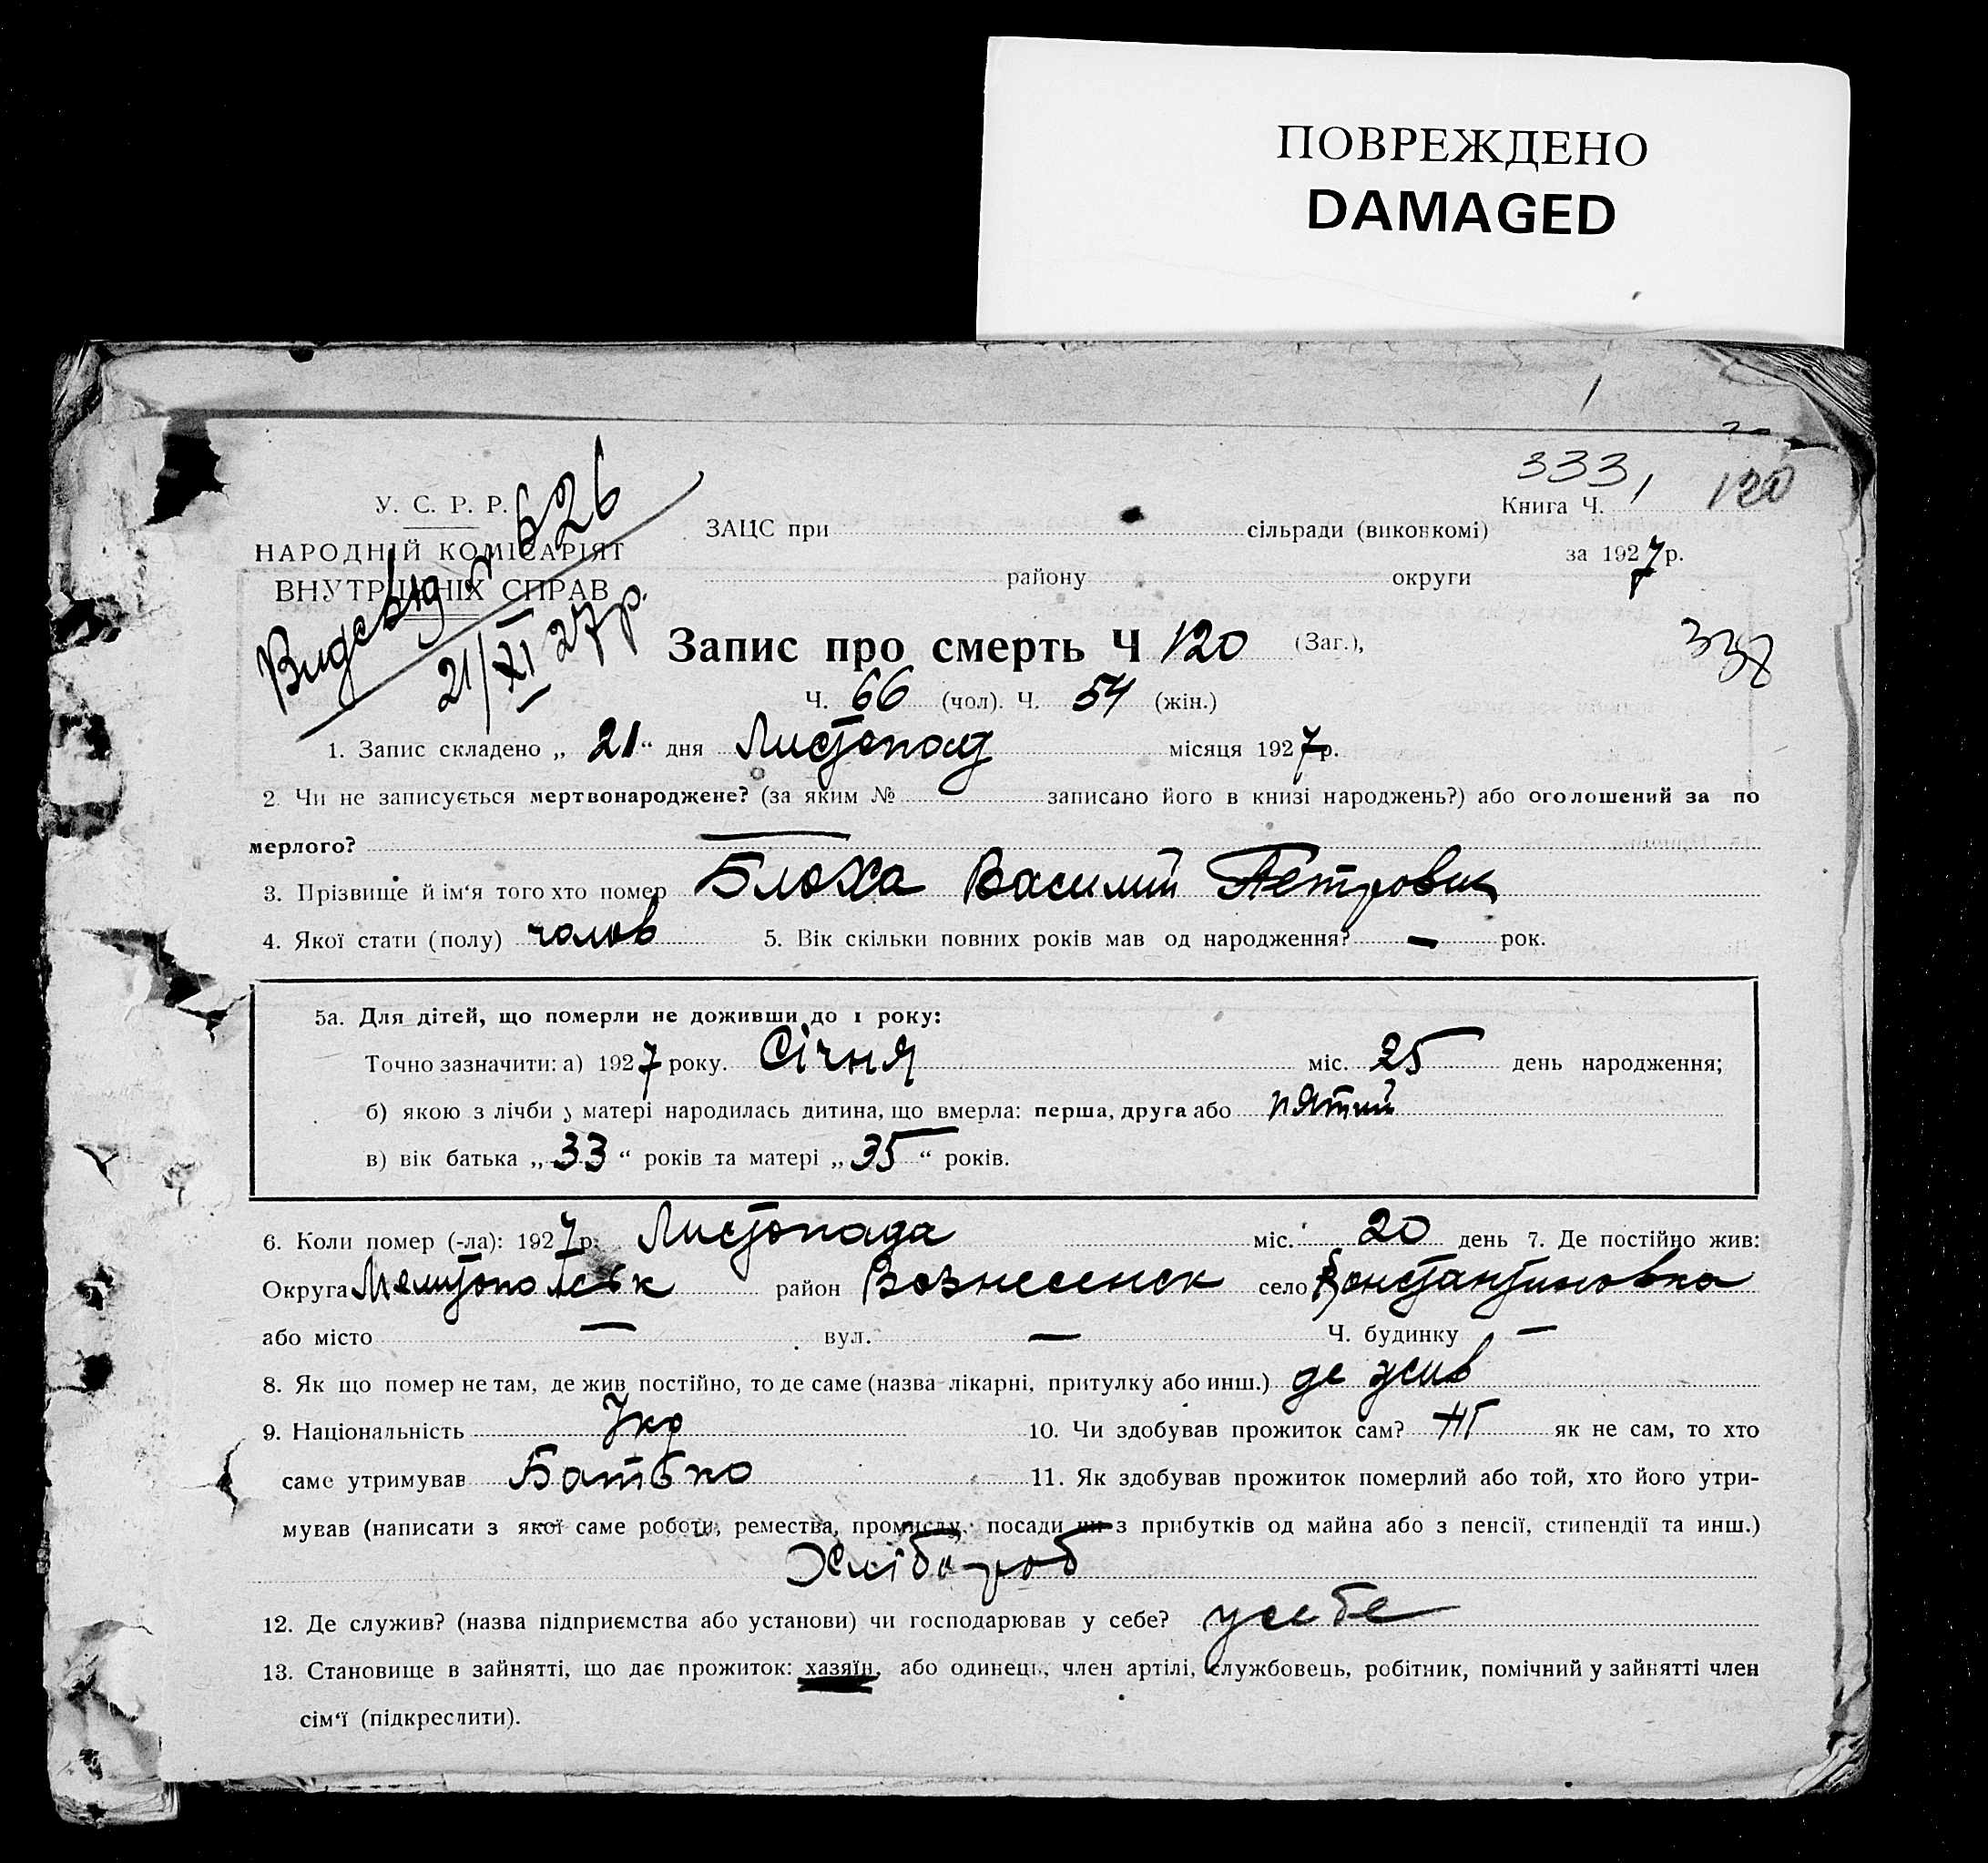 ПОВРЕЖДЕНО
DAMAGED
1
333, 120
У. С. Р. Р.
НАРОДНІЙ КОМІСАРІЯТ
ВНУТРІШНІХ СПРАВ
626
21/XI 27р.
ЗАЦС при сільради (виконкомі)
району округи
Книга Ч.
за 1927р.
Запис про смерть Ч 120 (Заг.),
Ч. 66 (чол). Ч. 54 (жін.)
1. Запис складено „ 21 “ дня Листопад місяця 1927р.
2. Чи не записується мертвонароджене? (за яким № записано його в книзі народжень?) або оголошений за по
мерлого?
3. Прізвище й ім‘я того хто помер Блоха Василий Петрович
4. Якої стати (полу) чолов 5. Вік скільки повних років мав од народження? — рок.
5а. Для дітей, що померли не доживши до 1 року:
Точно зазначити: а) 1927 року. Січня міс. 25 день народження;
б) якою з лічби у матері народилась дитина, що вмерла: перша, друга або пятий
в) вік батька „ 33 “ років та матері „ 35 “ років.
6. Коли помер (-ла): 1927р. Листопада міс. 20 день 7. Де постійно жив:
Округа Мелитопольськ район Вознесенск село Константиновка
або місто — вул. — Ч. будинку —
8. Як що помер не там, де жив постійно, то де саме (назва лікарні, притулку або инш.) де жив
9. Національність Укр 10. Чи здобував прожиток сам? Ні як не сам, то хто
саме утримував Батько 11. Як здобував прожиток померлий або той, хто його утри-
мував (написати з якої саме роботи, ремества, промислу, посади чи з прибутків од майна або з пенсії, стипендії та инш.)
Хлібороб
12. Де служив? (назва підприємства або установи) чи господарював у себе? у себе
13. Становище в зайнятті, що дає прожиток: хазяїн, або одинець, член артілі, службовець, робітник, помічний у зайнятті член
сім‘ї (підкреслити).